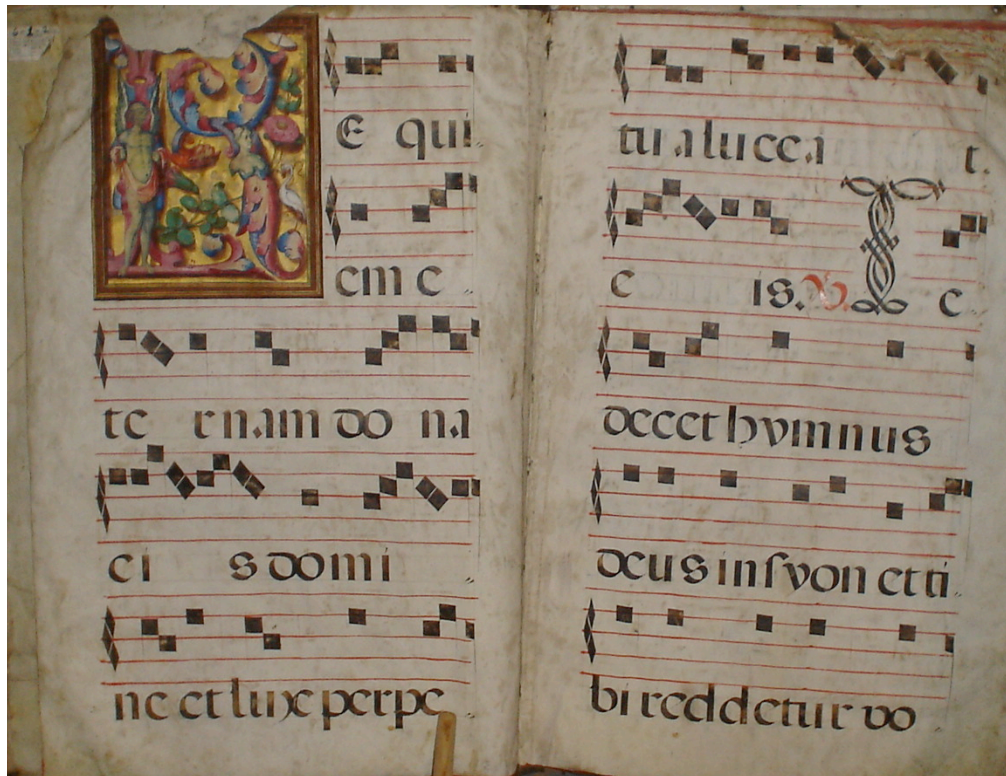 RE qui
em e
te rnam do na
ei s domi
ne et lux perpe
tu a lu cea t.
e is. V. Te
decet hymnus
deus in syon et ti
bi reddetur vo